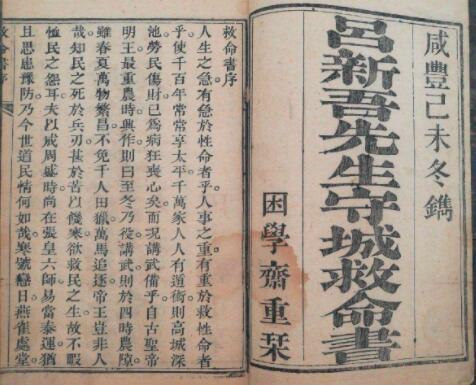 咸豐己未冬鐫
呂新吾先生守城救命書
困學齋重栞
救命書序
人生之急有急於性命者乎。人事之重有重於救性命者
乎。使千百年常常享太平。千萬家人人有道術。則高城深
池。勞民傷財。已為病狂喪心矣。而況講武備乎。自古聖帝
明王。最重農時。興作則曰至冬乃役。講武則於四時農隙。
雖春夏萬物繁昌。不免千人田獵。萬馬追逐。帝王豈非人
哉。知民之死於兵刃。甚於苦以饑寒。欲救民之生。故不暇
恤民之怨耳。夫以成周盛時。尚在張皇六師。易當泰運。猶
且思患豫防。乃今世道民情何如哉。寒號戀日。燕雀處堂。